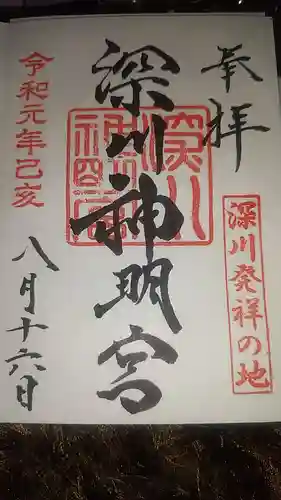 奉拝
深川発祥の地
深川神明宮
令和元年己亥
八月十六日